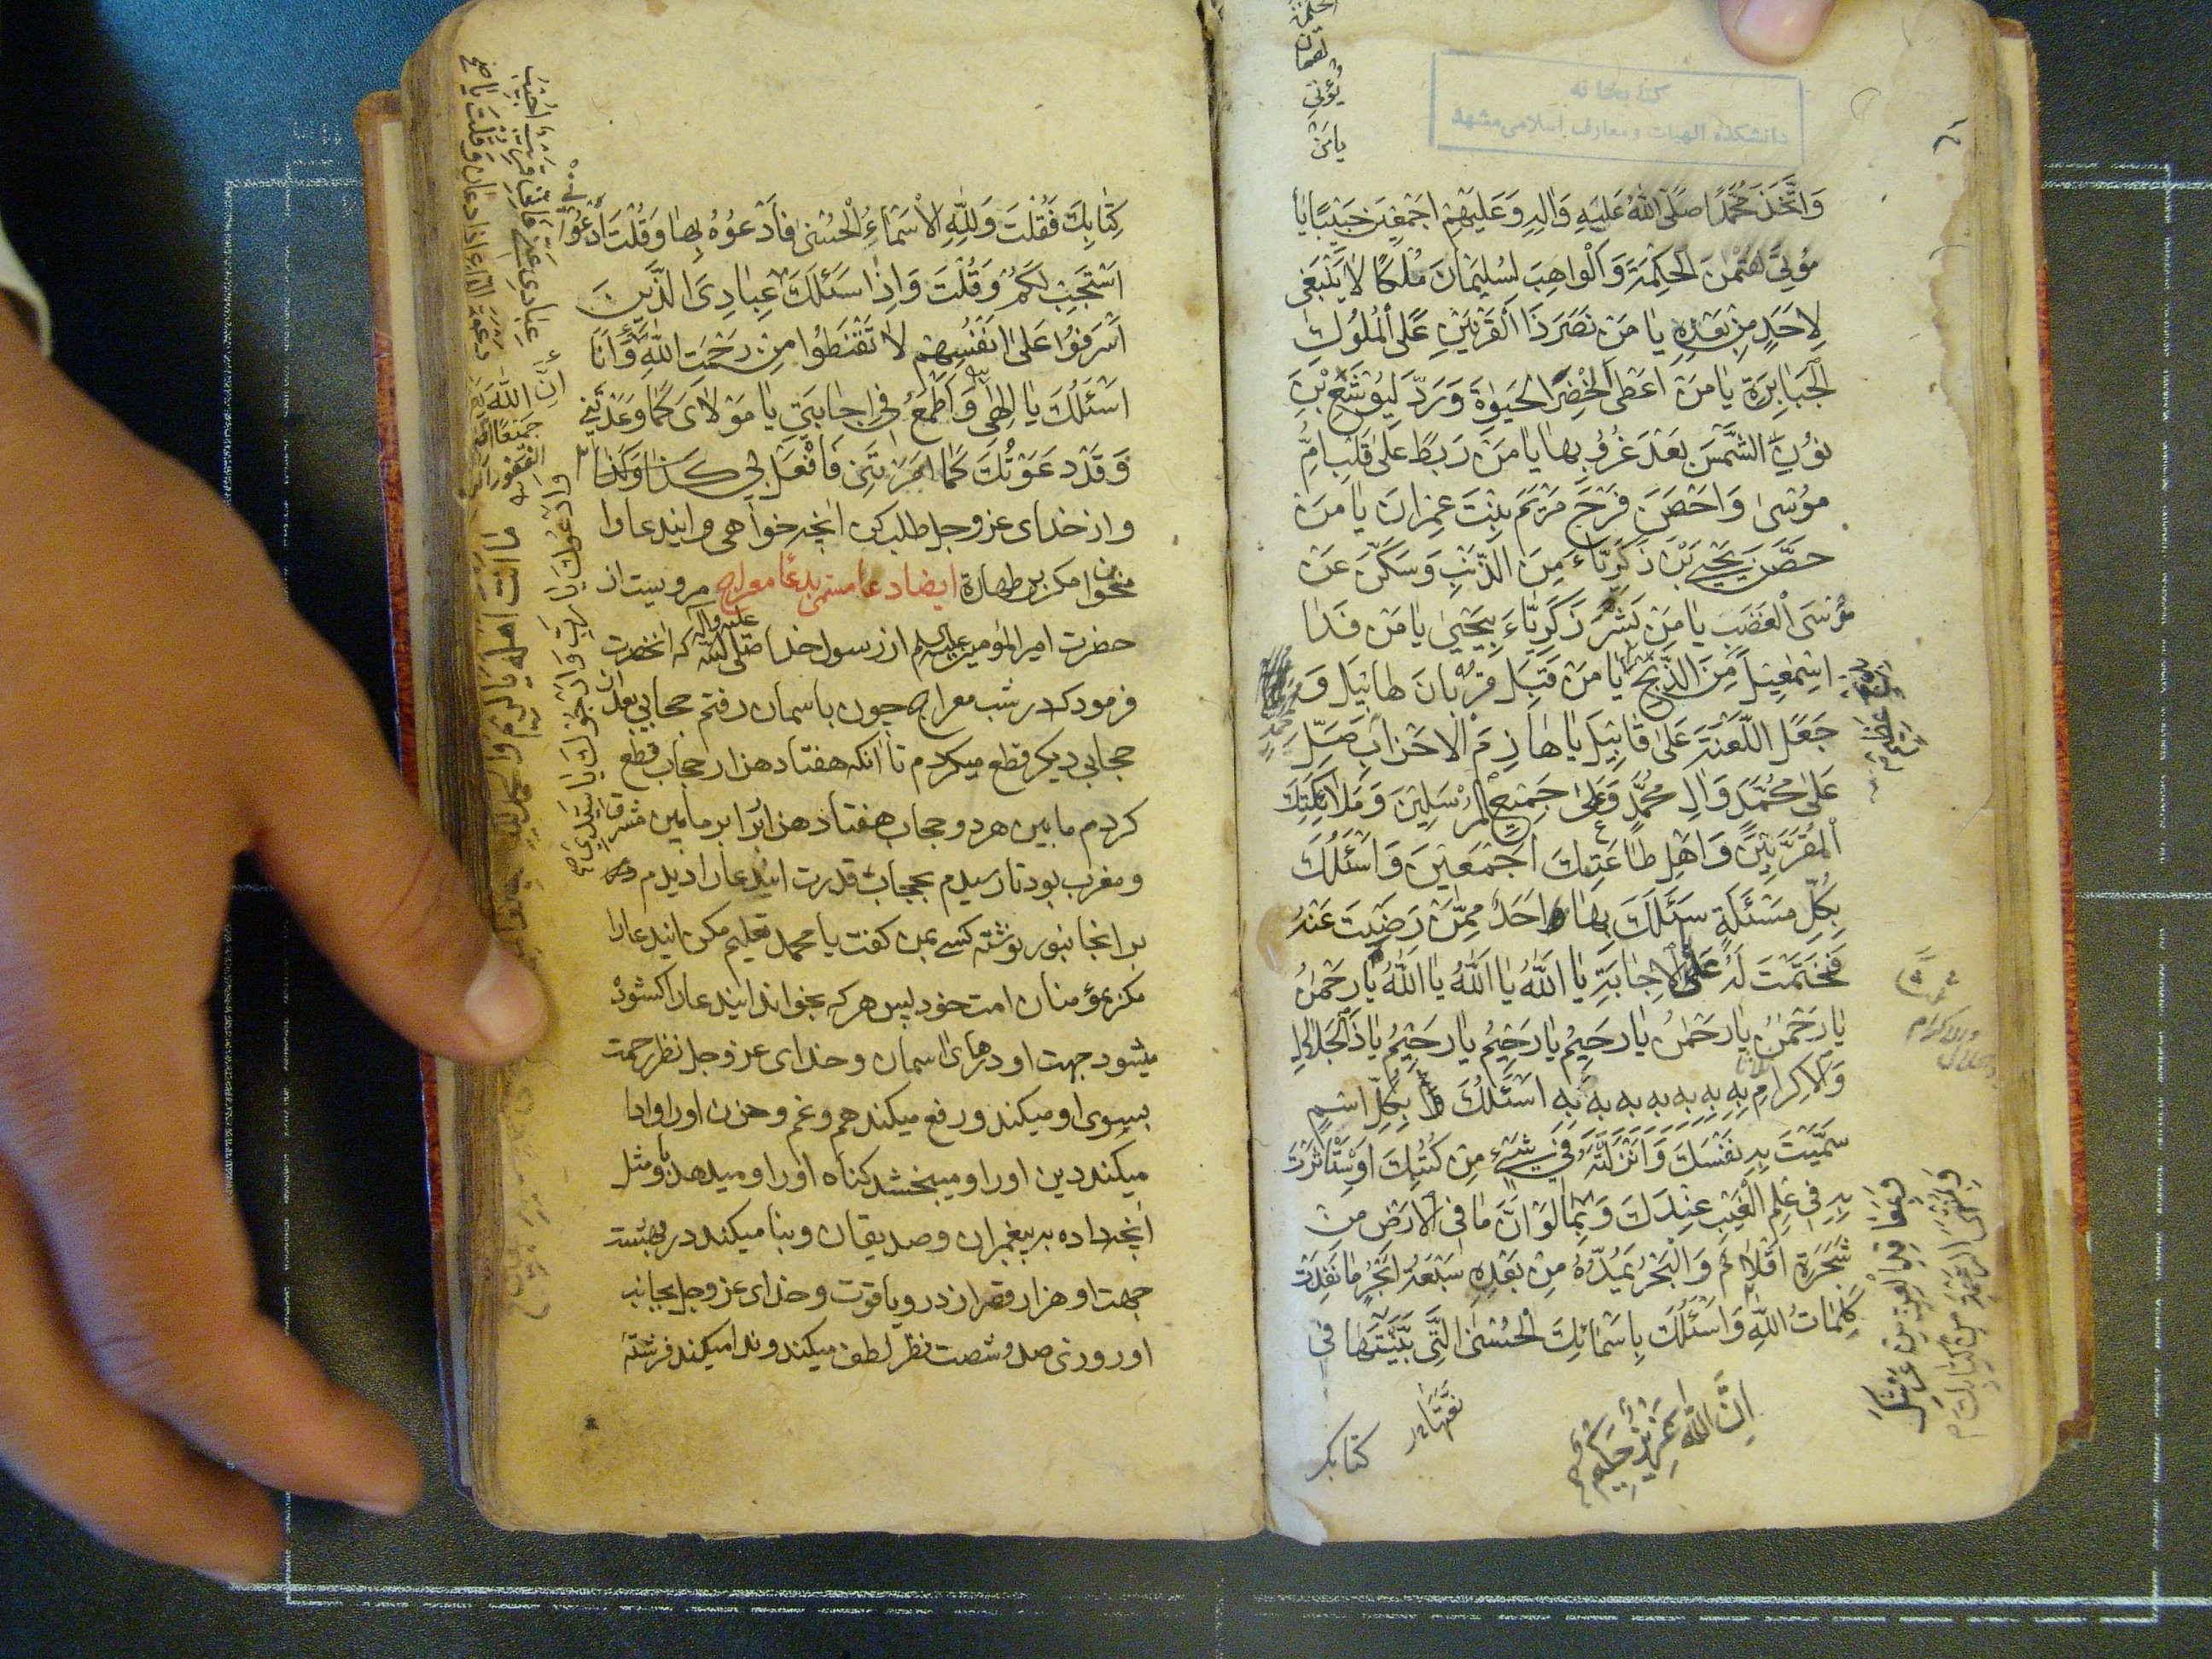 كتابخانه
دانشكده الهیات ومعارف اسلامی مشهد
وَاتَّخَذَ مُحَمَّدًا صَلَّى اللهُ عَلَيْهِ وَالِهِ وَعَلَيْهِمْ اَجْمَعِينَ حَبيبًا يا
مُؤْتِيَ لُقْمٰنَ الْحِكْمَةَ وَالْواهِبَ لِسُلَيْمانَ مُلْكًا لا يَنْبَغى
لِاَحَدٍ مِنْ بَعْدِهِ يا مَنْ نَصَرَ ذَا الْقَرْنَيْنِ عَلَى الْمُلُوكِ
الْجَبابِرَةِ يا مَنْ اَعْطَى الْخِضْرَ الْحَيٰوةَ وَرَدَّ لِيُوشَعَ بْنِ
نُونٍ الشَّمْسَ بَعْدَ غُرُوبِها يا مَنْ رَبَطَ عَلى قَلْبِ اُمِّ
مُوسى وَاَحْصَنَ فَرْجَ مَرْيَمَ بِنْتَ عِمْرانَ يا مَنْ
حَصَّنَ يَحْيَى بْنَ زَكَرِيَّاءَ مِنَ الذَّنْبِ وَسَكَّنَ عَنْ
مُوسَى الْغَضَبَ يا مَنْ بَشَّرَ زَكَرِيَّاءَ بِيَحْيى يا مَنْ فَدا
اِسْمٰعِيلَ مِنَ الذَّبْحِ يا مَنْ قَبِلَ قُرْبانَ هابِيلَ وَ
جَعَلَ اللَّعْنَةَ عَلى قابِيلَ يا هازِمَ الْاَحْزابِ صَلِّ
عَلى مُحَمَّدٍ وَالِ مُحَمَّدٍ وَعَلى جَمِيعِ الْمُرْسَلِينَ وَمَلائِكَتِكَ
الْمُقَرَّبِينَ وَاَهْلِ طاعَتِكَ اَجْمَعِينَ وَاَسْئَلُكَ
بِكُلِّ مَسْئَلَةٍ سَئَلَكَ بِها اَحَدٌ مِمَّنْ رَضِيتَ عَنْهُ
فَحَتَمْتَ لَهُ عَلَى الْاِجابَةِ يا اَللهُ يا اَللهُ يا اَللهُ يا رَحْمٰنُ
يا رَحْمٰنُ يا رَحْمٰنُ يا رَحِيمُ يا رَحِيمُ يا رَحِيمُ يا ذَا الْجَلالِ
وَالْاِكْرامِ بِهِ بِهِ بِهِ بِهِ بِهِ بِهِ بِهِ اَسْئَلُكَ بِكُلِّ اسْمٍ
سَمَّيْتَ بِهِ نَفْسَكَ وَاَنْزَلْتَهُ فِي شَيْءٍ مِنْ كُتُبِكَ اَوِ اسْتَأْثَرْتَ
بِهِ فِي عِلْمِ الْغَيْبِ عِنْدَكَ وَبِما لَوْ اَنَّ ما فِي الْاَرْضِ مِنْ
شَجَرَةٍ اَقْلامٌ وَالْبَحْرُ يَمُدُّهُ مِنْ بَعْدِهِ سَبْعَةُ اَبْحُرٍ ما نَفِدَتْ
كَلِماتُ اللهِ وَاَسْئَلُكَ بِاَسْمائِكَ الْحُسْنَى الَّتِي بَيَّنْتَها فى
اِنَّ اللهَ عَزِيزٌ حَكِيمٌ
كتابك
كِتابِكَ فَقُلْتَ وَلِلّٰهِ الْاَسْماءُ الْحُسْنى فَادْعُوهُ بِها وَقُلْتَ ادْعُونِي
اَسْتَجِبْ لَكُمْ وَقُلْتَ وَاِذا سَئَلَكَ عِبادِى الَّذِينَ
اَسْرَفُوا عَلى اَنْفُسِهِمْ لا تَقْنَطُوا مِنْ رَحْمَتِ اللهِ وَاَنَا
اَسْئَلُكَ يا اِلٰهى وَاَطْمَعُ فى اِجابَتِى يا مَوْلاىَ كَما وَعَدْتَنِى
وَقَدْ دَعَوْتُكَ كَما اَمَرْتَنِى فَافْعَلْ بِى كَذا وَكَذا
واز خداى عزوجل طلب كن انچه خواهى واينده عارا
مخوان مكر بر طهارة ايضا دعا مسمى بدعا معراج مرويست از
حضرت امير المؤمنين عليه السلم از رسول خدا صلى الله عليه واله كه انحضرت
فرمود كه در شب معراج چون باسمان رفتم حجابي بعد از
حجابى ديكر قطع ميكردم تا انكه هفتاد هزار حجاب قطع
كردم ما بين هر دو حجاب هفتاد هزار برابر ما بين مشرق
ومغرب بود تا رسيدم بحجاب قدرت ايندعا را ديدم كه
بر انجا بنور نوشته كسے بمن كفت يا محمد تعليم مكن ايندعارا
مكر بمؤمنان امت خود پس هر كه بخواند ايندعارا كشوده
ميشود جهت او درهاى اسمان وخداى عزوجل نظر رحمت
بسوى او ميكند ورفع ميكند هم وغم وحزن او را وادا
ميكند دين او را وميبخشد كناه او را وميدهد باو مثل
انچه داده به پيغمبران وصديقان وبنا ميكند در بهشت
جهت او هزار قصر از در وياقوت وخداى عزوجل بجانب
او روزى صد وشصت نظر لطف ميكند وندا ميكند فرشتۀ